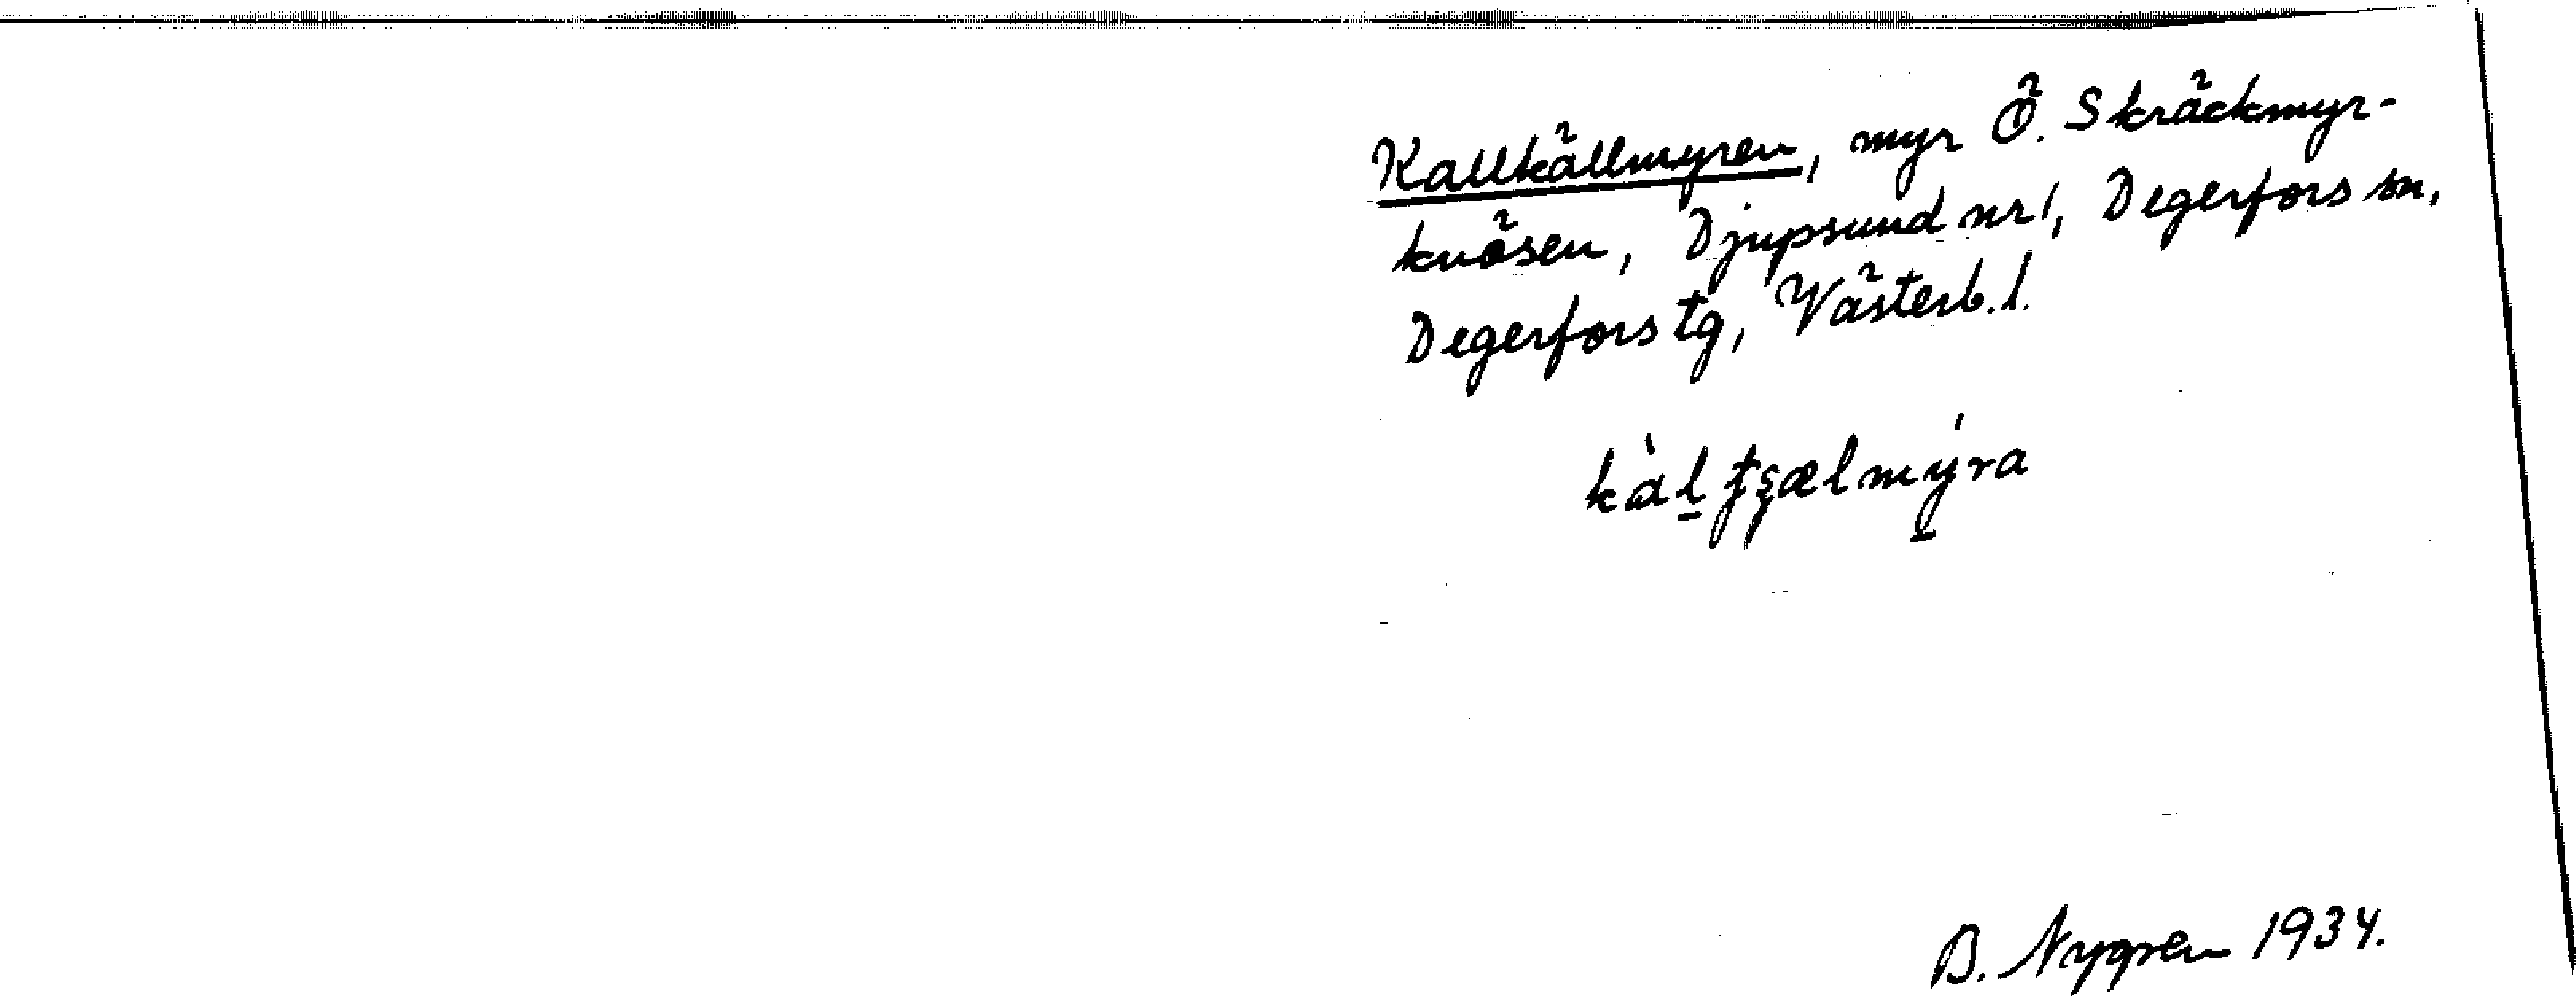 Kallkällmyren, myr Ö. Skräckmyr-
knösen, Djupsund nr 1, Degerfors sn,
Degerfors tg, Västerb. l.
kàl̠ ʈʂælmýra
B. Nygren 1934.